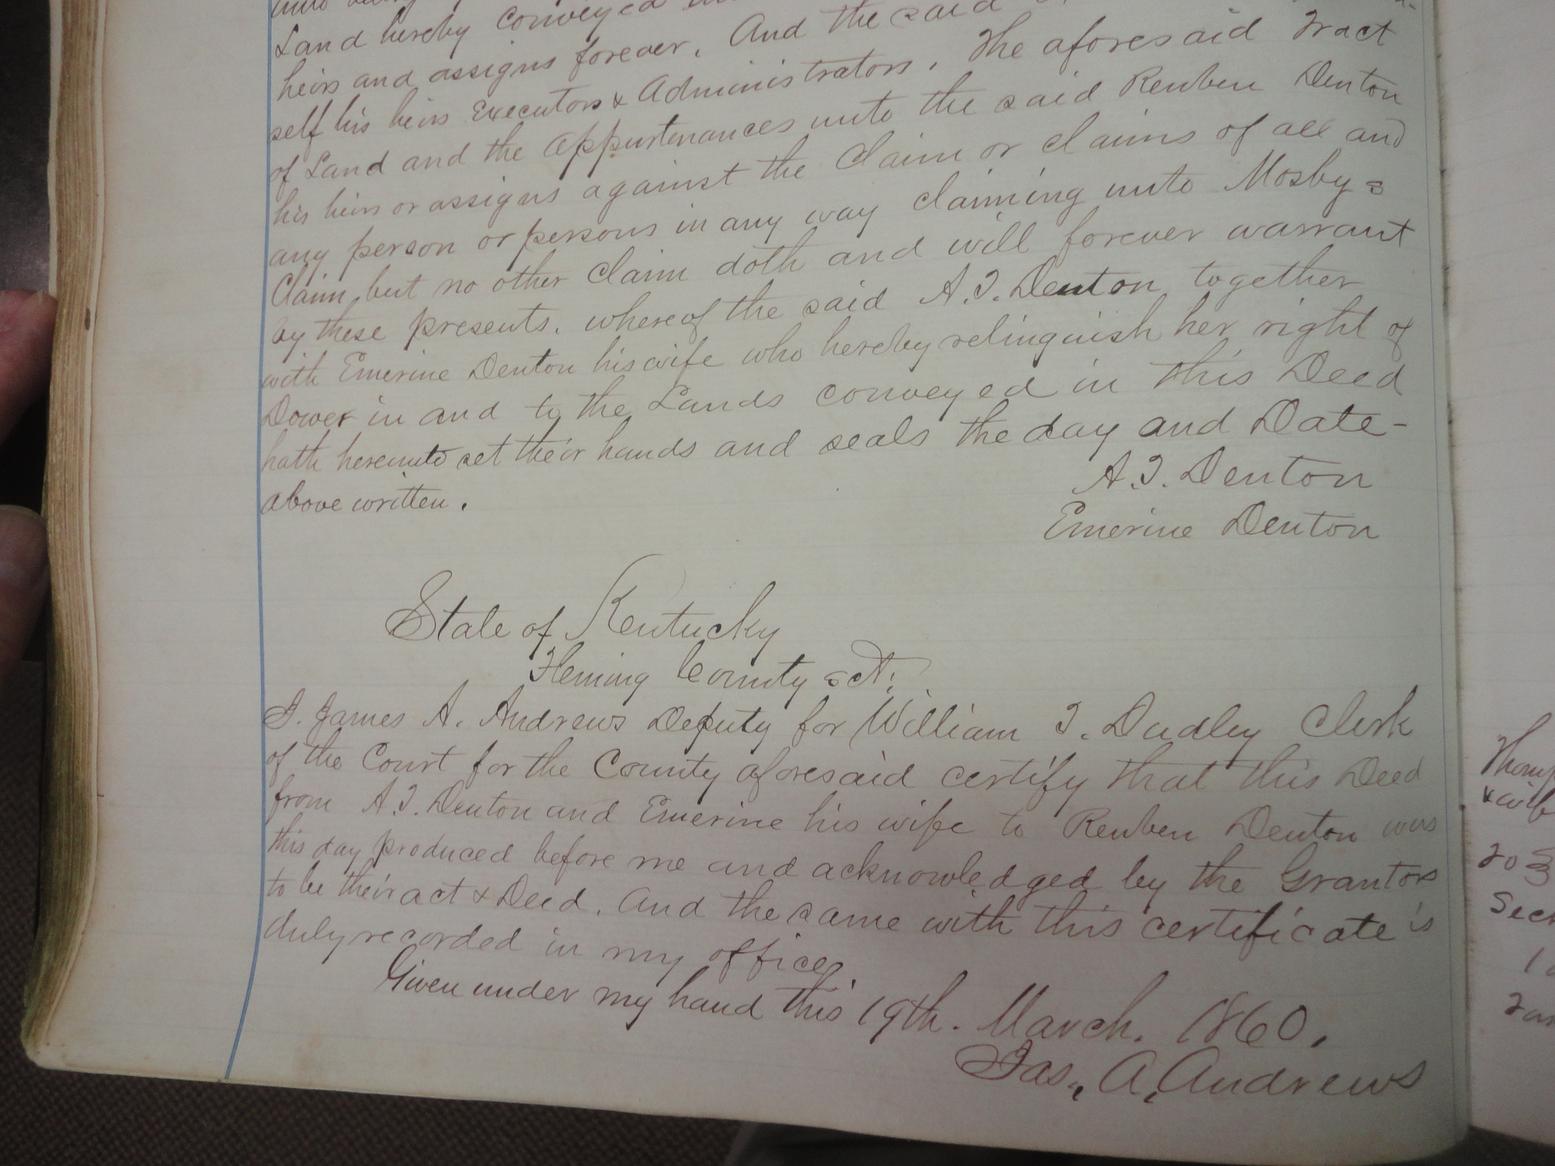 Land hereby conveyed
heirs and assigns forever. And the said
self his heirs Executors & Administrators. The aforesaid Tract
of Land and the Appurtenances unto the said Reuben Denton
his heirs or assigns against the Claim or claims of all and
any person or persons in any way claiming unto Mosby =
Claim, but no other Claim doth and will forever warrant
by these presents. whereof the said A. T. Denton, together
with Emerine Denton his wife who hereby relinquish her right of
Dower in and to the Lands conveyed in this Deed
hath hereunto set their hands and seals the day and Date -
above written.
A. T. Denton
Emerine Denton
State of Kentucky
Fleming County Sct.
I. James A. Andrews Deputy for William T. Dudley Clerk
of the Court for the County aforesaid certify that this Deed
from A. T. Denton and Emerine his wife to Reuben Denton was
this day produced before me and acknowledged by the Grantors
to be their act & Deed. And the same with this certificate is
duly recorded in my office.
Given under my hand this 19th. March. 1860.
Jas. A. Andrews